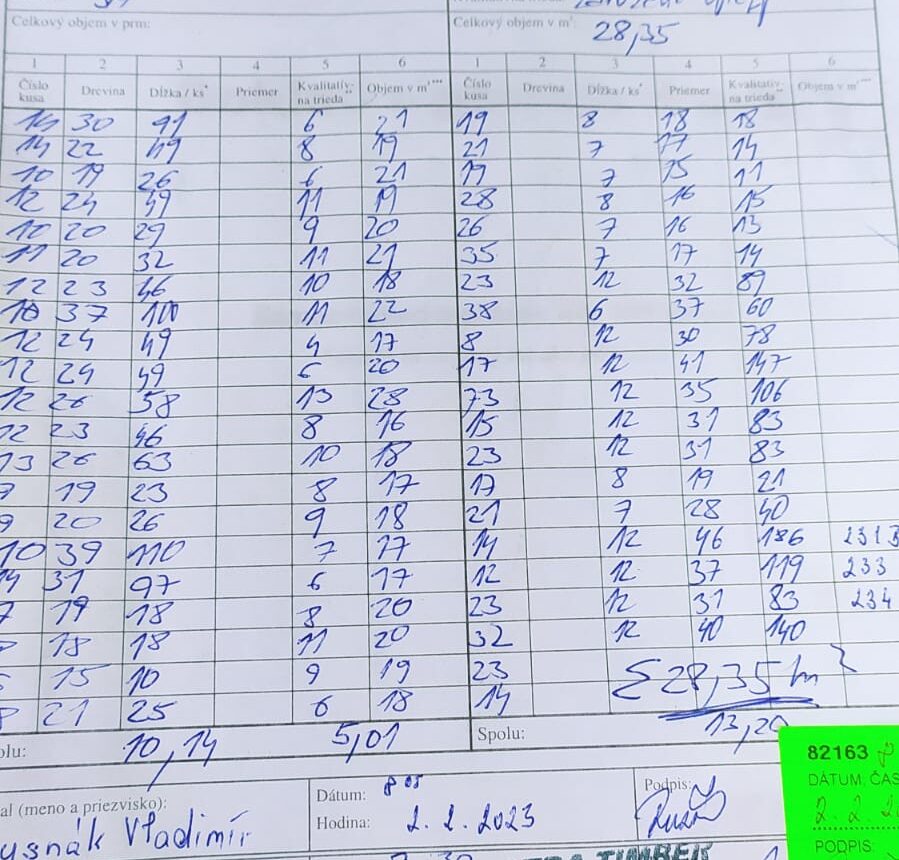 Celkový objem v prm: Celkový objem v m³:
28,35
1 2 3 4 5 6 1 2 3 4 5 6
Číslo kusa Drevina Dĺžka / ks* Priemer Kvalitatív- na trieda** Objem v m³*** Číslo kusa Drevina Dĺžka / ks* Priemer Kvalitatív- na trieda** Objem v m³***
30 91 6 21 19 8 18 18
14 22 49 8 19 21 7 17 14
10 19 26 6 21 19 7 15 11
12 24 49 11 19 28 8 16 15
10 20 29 9 20 26 7 16 13
11 20 32 11 21 35 7 17 14
12 23 46 10 18 23 12 32 89
10 37 100 11 22 38 6 37 60
12 24 49 4 17 8 12 30 78
12 24 49 6 20 17 12 41 147
12 26 58 13 28 73 12 35 106
12 23 46 8 16 15 12 31 83
13 26 63 10 18 23 12 31 83
19 23 8 17 17 8 19 21
9 20 26 9 18 21 7 28 40
10 39 110 7 17 14 12 46 186 231B
14 31 97 6 17 12 12 37 119 233
7 19 18 8 20 23 12 31 83 234
18 18 11 20 32 12 40 140
15 10 9 19 23 Σ 28,35 m³
21 25 6 18 14
olu: 10,14 5,01 Spolu: 13,20
82163
al (meno a priezvisko): Dátum: 8 05 Podpis: DÁTUM, ČAS
usnák Vladimír Hodina: 2. 2. 2023 2. 2. 2
PODPIS:
TIMBER